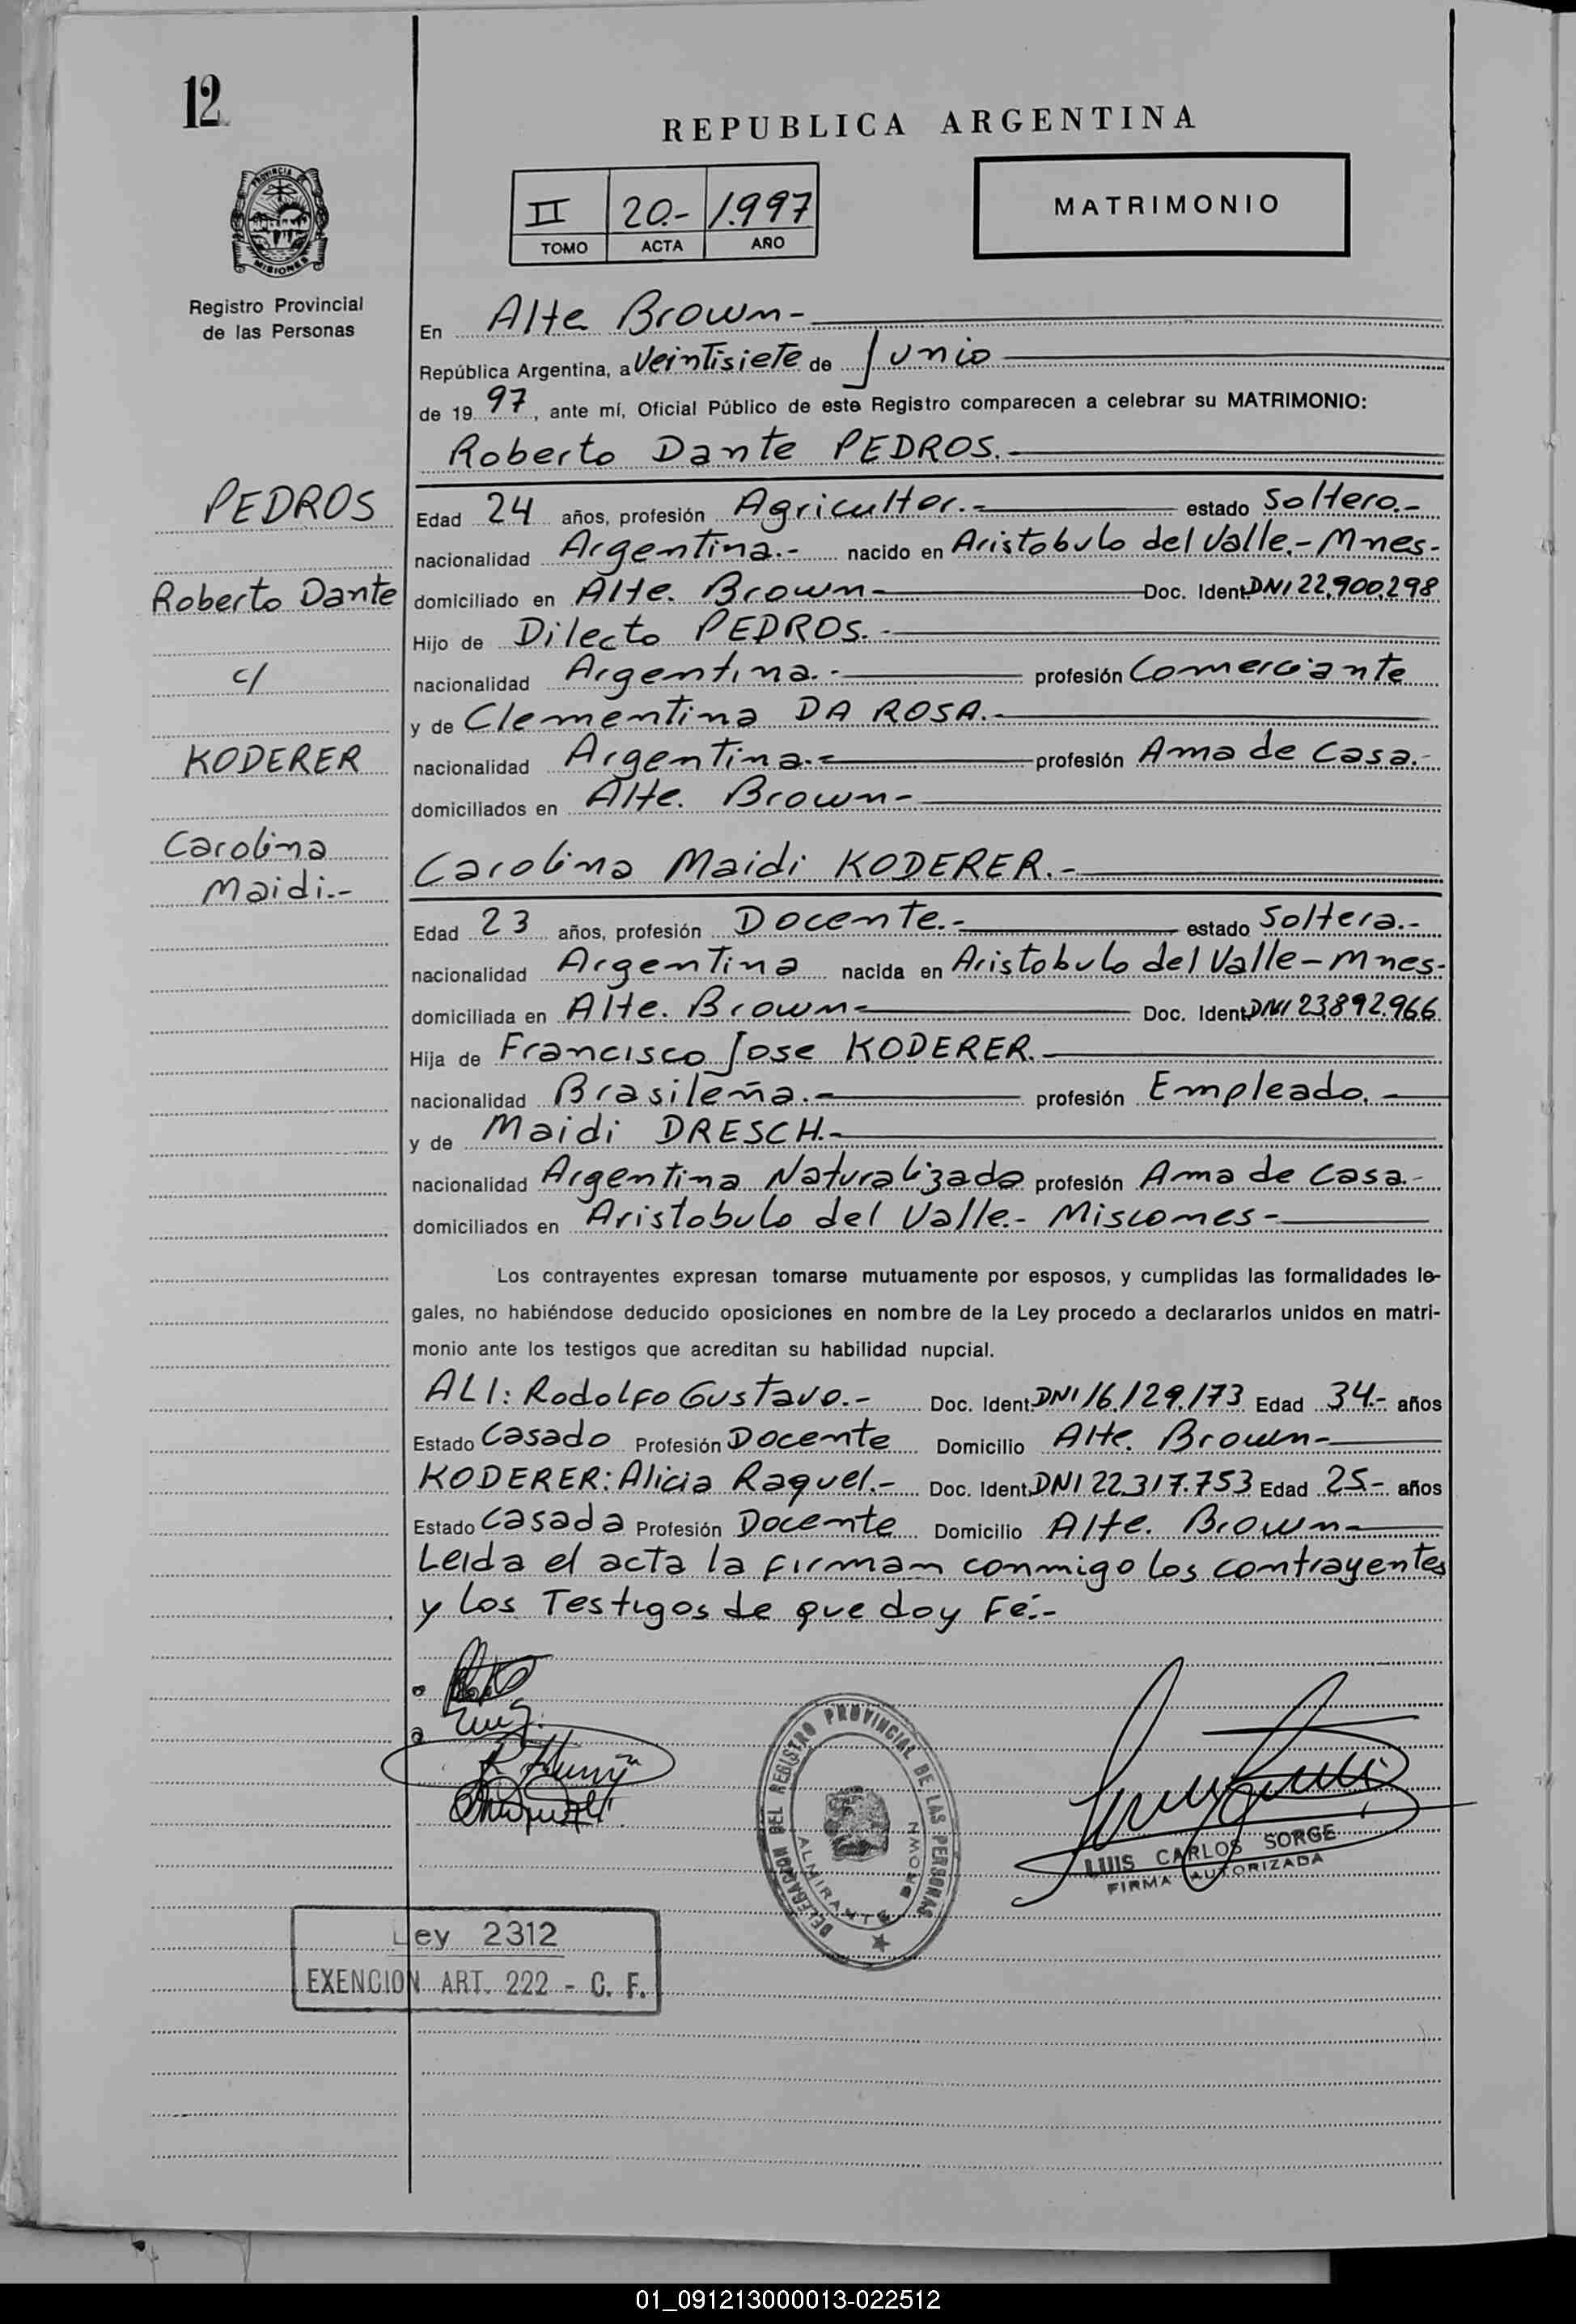 12
REPUBLICA ARGENTINA
PROVINCIA DE
MISIONES
Registro Provincial
de las Personas
II 20.- 1.997
TOMO ACTA AÑO
MATRIMONIO
En Alte Brown-
República Argentina, a Veintisiete de Junio
de 19 97, ante mí, Oficial Público de este Registro comparecen a celebrar su MATRIMONIO:
Roberto Dante PEDROS.
PEDROS
Roberto Dante
c/
KODERER
Carolina
Maidi.-
Edad 24 años, profesión Agricultor.- estado Soltero.-
nacionalidad Argentina.- nacido en Aristobulo del Valle.- Mnes-
domiciliado en Alte. Brown- Doc. Ident. DNI 22.900.298
Hijo de Dilecto PEDROS.-
nacionalidad Argentina.- profesión Comerciante
y de Clementina DA ROSA.-
nacionalidad Argentina.- profesión Ama de Casa.-
domiciliados en Alte. Brown-
Carolina Maidi KODERER.-
Edad 23 años, profesión Docente.- estado Soltera.-
nacionalidad Argentina nacida en Aristobulo del Valle-Mnes-
domiciliada en Alte. Brown- Doc. Ident. DNI 23.892.966
Hija de Francisco Jose KODERER.-
nacionalidad Brasileña.- profesión Empleado.-
y de Maidi DRESCH.-
nacionalidad Argentina Naturalizada profesión Ama de Casa.-
domiciliados en Aristobulo del Valle.- Misiones-
Los contrayentes expresan tomarse mutuamente por esposos, y cumplidas las formalidades le-
gales, no habiéndose deducido oposiciones en nombre de la Ley procedo a declararlos unidos en matri-
monio ante los testigos que acreditan su habilidad nupcial.
ALI: Rodolfo Gustavo.- Doc. Ident. DNI 16.129.173 Edad 34.- años
Estado Casado Profesión Docente Domicilio Alte. Brown-
KODERER: Alicia Raquel.- Doc. Ident. DNI 22.317.753 Edad 25.- años
Estado Casada Profesión Docente Domicilio Alte. Brown-
Leida el acta la firman conmigo los contrayentes
y los Testigos de que doy Fé.-
DELEGACION DEL REGISTRO PROVINCIAL DE LAS PERSONAS
ALMIRANTE BROWN
LUIS CARLOS SORGE
FIRMA AUTORIZADA
Ley 2312
EXENCION ART. 222 - C. F.
01_091213000013-022512